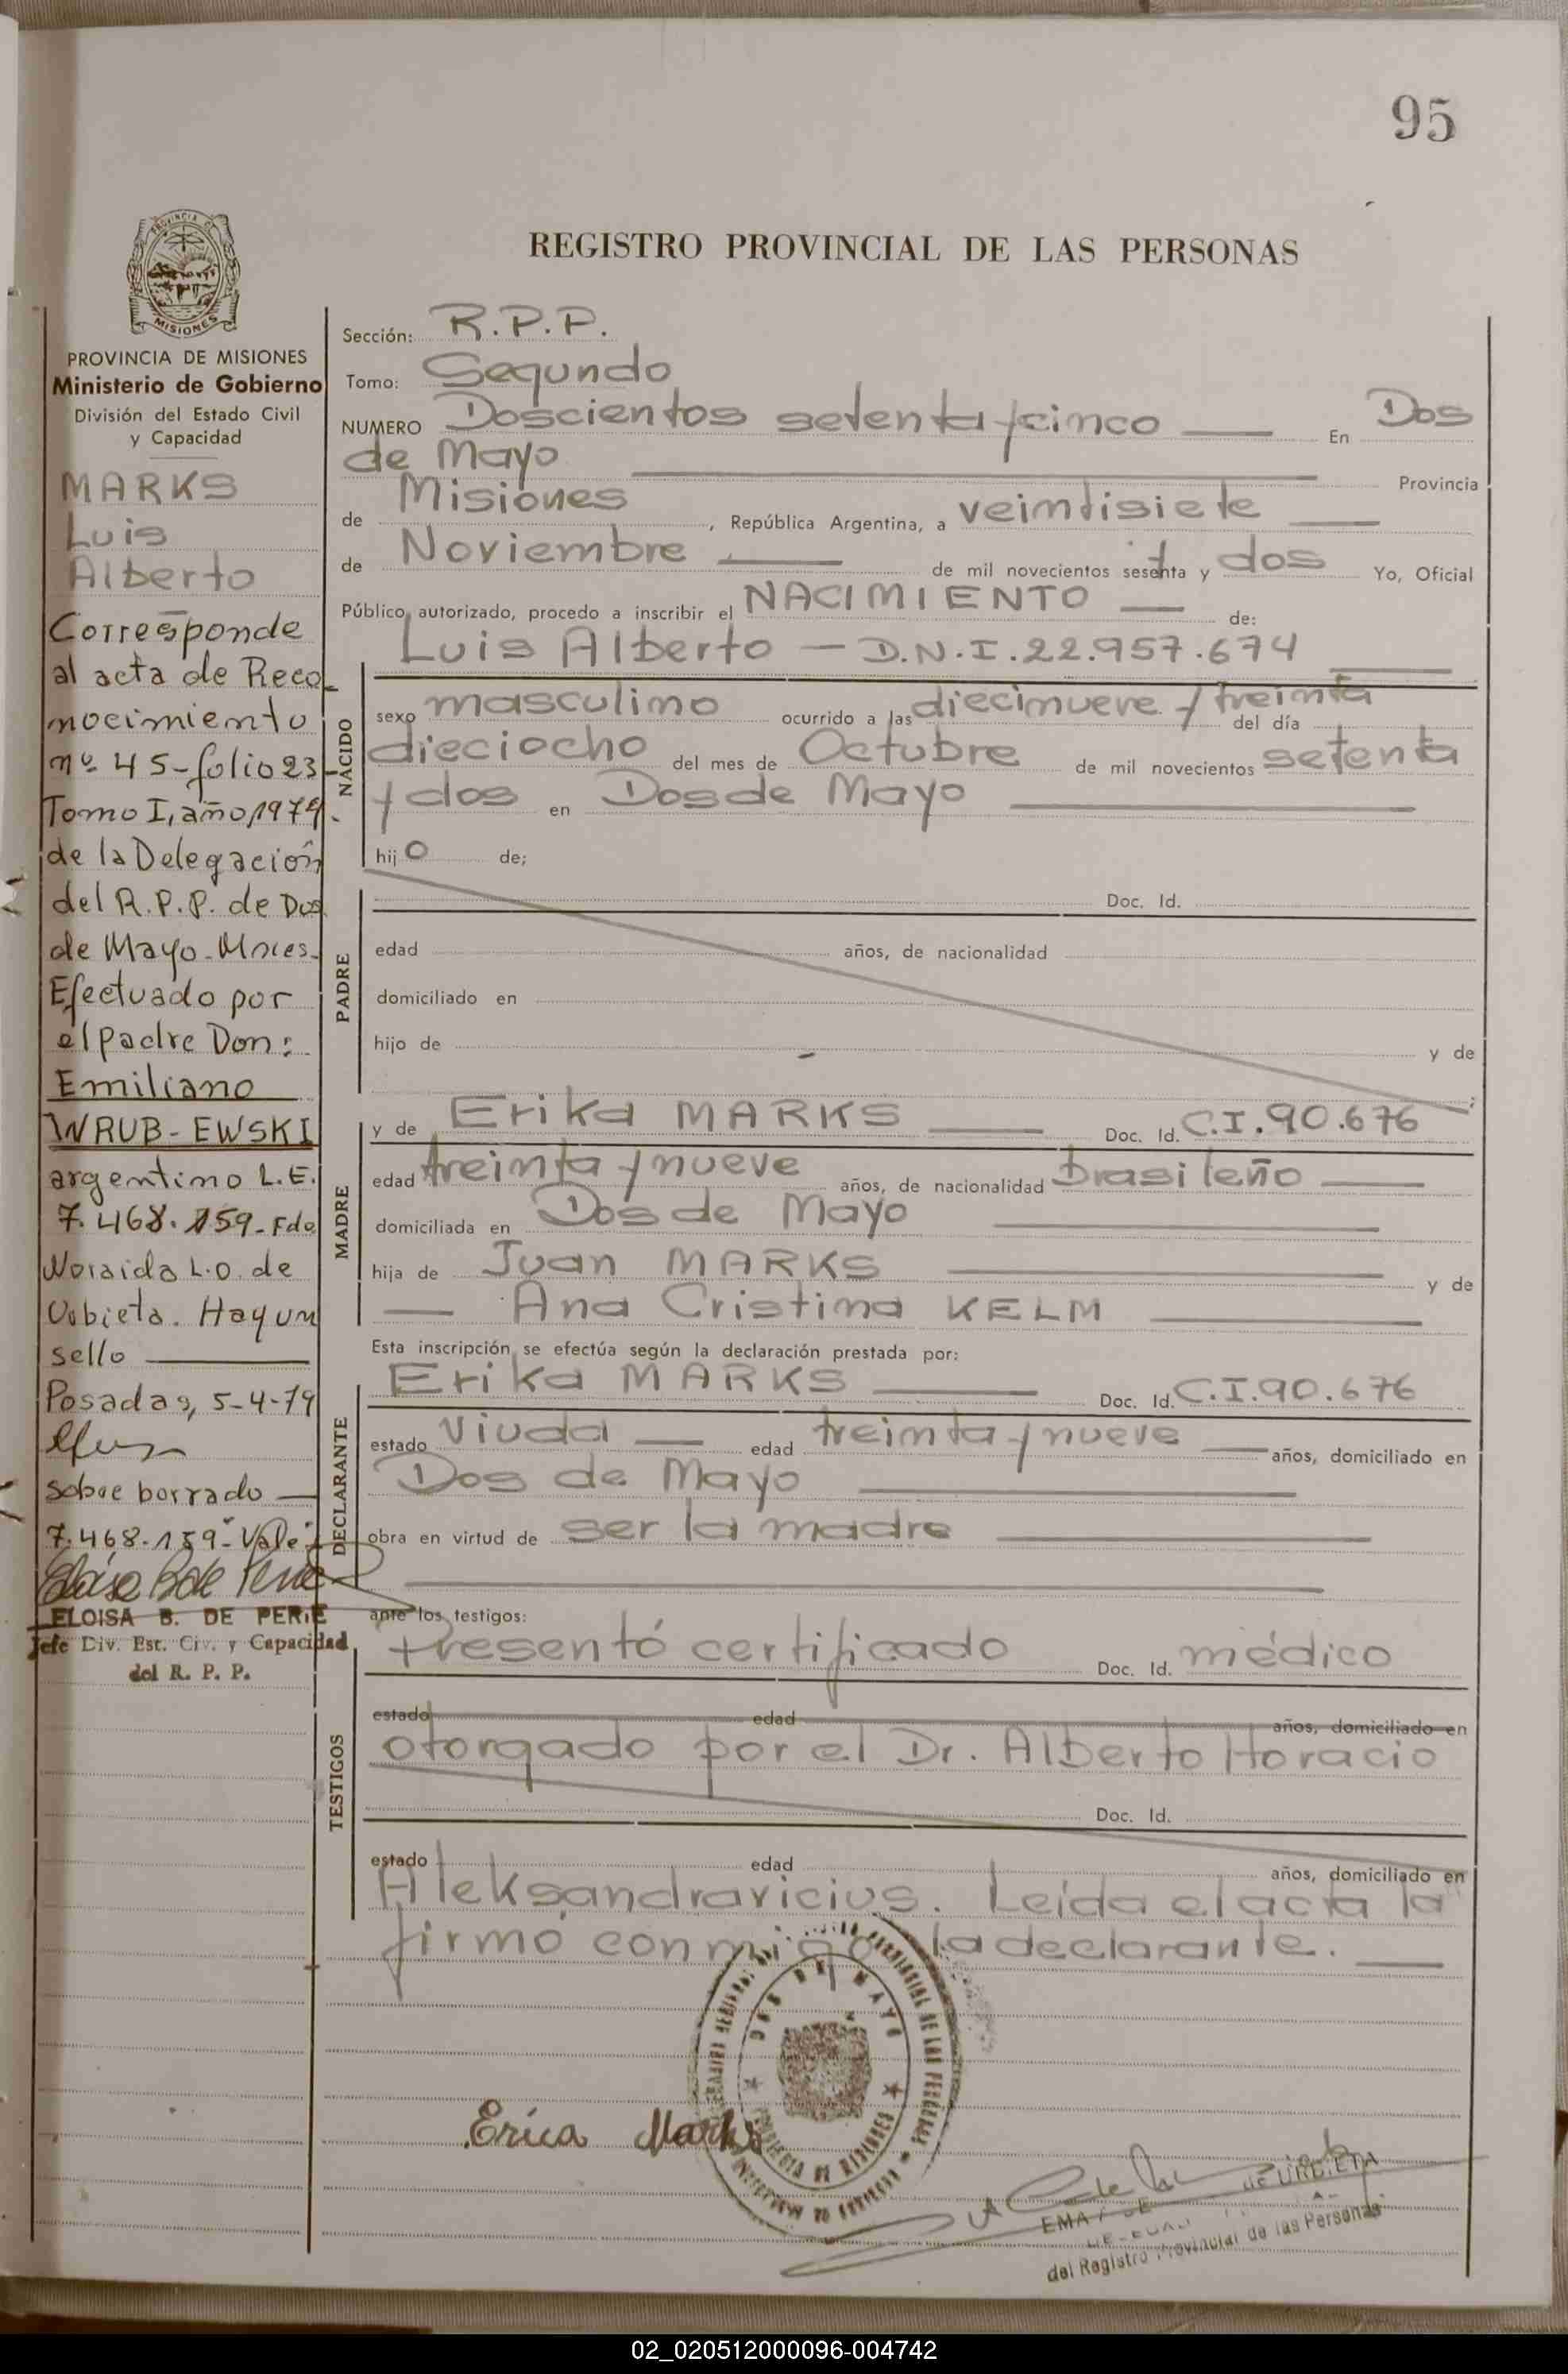 95
REGISTRO PROVINCIAL DE LAS PERSONAS
PROVINCIA DE MISIONES
Ministerio de Gobierno
División del Estado Civil
y Capacidad
MARKS
Luis
Alberto
Corresponde
al acta de Reco-
nocimiento
nº 45-folio 23-
Tomo I, año 1974.
de la Delegación
del R.P.P. de Dos
de Mayo-Mnes-
Efectuado por
el padre Don:
Emiliano
WRUB-EWSKI
argentino L.E.
7.468.159-Fdo
L.O. de
Urbieta. Hay un
sello
Posadas, 5-4-79
sobre borrado
7.468.159-"Vale"
ELOISA B. DE PERIE
Jefe Div. Est. Civ. y Capacidad
del R. P. P.
Sección: R.P.P.
Tomo: Segundo
NUMERO Doscientos setenta y cinco En Dos
de Mayo Provincia
de Misiones, República Argentina, a veintisiete
de Noviembre de mil novecientos setenta y dos Yo, Oficial
Público autorizado, procedo a inscribir el NACIMIENTO de:
Luis Alberto - D.N.I. 22.957.674
NACIDO
sexo masculino ocurrido a las diecinueve y treinta del día
dieciocho del mes de Octubre de mil novecientos setenta
y dos en Dos de Mayo
hijo de;
PADRE
Doc. Id.
edad años, de nacionalidad
domiciliado en
hijo de y de
MADRE
y de Erika MARKS Doc. Id. C.I.90.676
edad treinta y nueve años, de nacionalidad brasileño
domiciliada en Dos de Mayo
hija de Juan MARKS y de
Ana Cristina KELM
Esta inscripción se efectúa según la declaración prestada por:
DECLARANTE
Erika MARKS Doc. Id. C.I.90.676
estado viuda edad treinta y nueve años, domiciliado en
Dos de Mayo
obra en virtud de ser la madre
ante los testigos:
TESTIGOS
Presentó certificado Doc. Id. médico
estado edad años, domiciliado en
otorgado por el Dr. Alberto Horacio
Doc. Id.
estado edad años, domiciliado en
Aleksandravicius. Leída el acta la
firmó conmigo la declarante.
DOS DE MAYO
PROVINCIA DE MISIONES
Erica Marks
EMA DE URBIETA
del Registro Provincial de las Personas
02_020512000096-004742